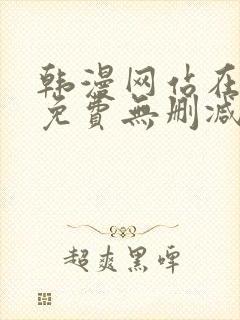 韩漫网站在
免費無刪减
超爽黑啤